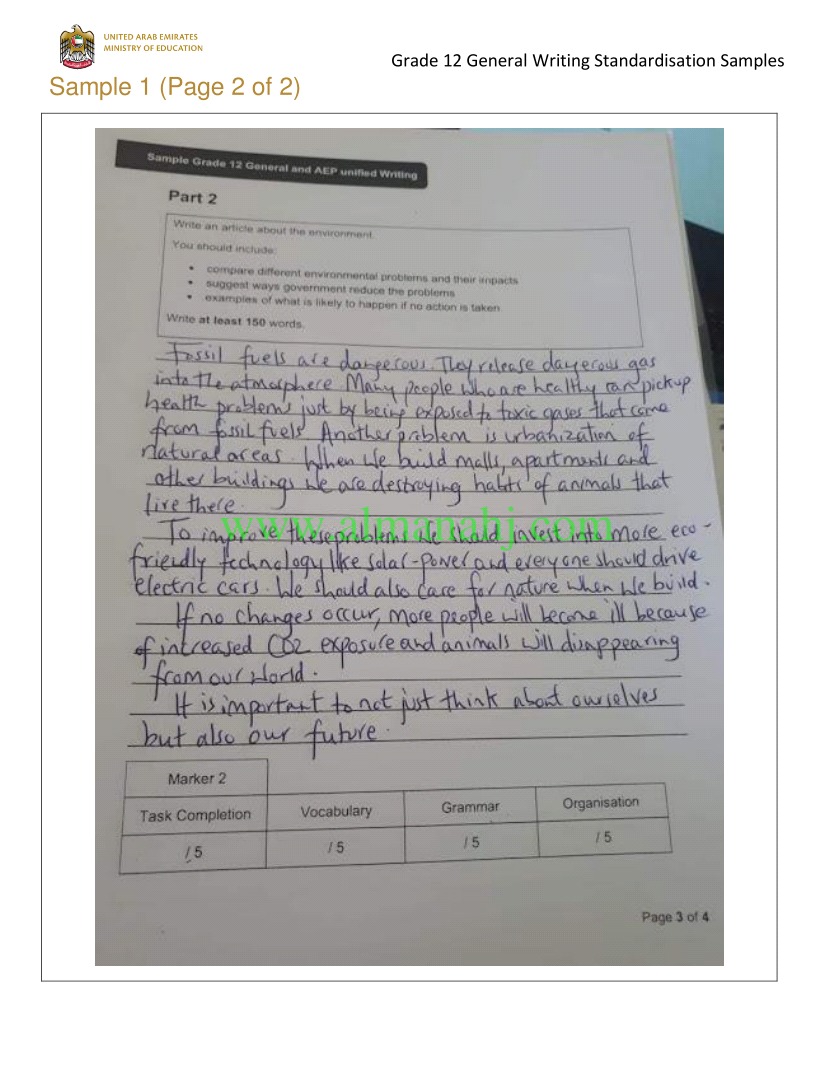 UNITED ARAB EMIRATES
MINISTRY OF EDUCATION
Grade 12 General Writing Standardisation Samples
Sample 1 (Page 2 of 2)
Sample Grade 12 General and AEP unified Writing
Part 2
Write an article about the environment.
You should include:
• compare different environmental problems and their impacts
• suggest ways government reduce the problems
• examples of what is likely to happen if no action is taken
Write at least 150 words.
Fossil fuels are dangerous. They release dangerous gas
into the atmosphere. Many people who are healthy can pick up
health problems just by being exposed to toxic gases that come
from fossil fuels. Another problem is urbanization of
natural areas. When we build malls, apartments and
other buildings we are destraying habits of animals that
live there.
www.almanahj.com
To improve these problems we should invest into more eco-
friendly technology like solar-power and everyone should drive
electric cars. We should also care for nature when we build.
If no changes occur, more people will become ill because
of increased CO2 exposure and animals will disappearing
from our world.
It is important to not just think about ourselves
but also our future.
Marker 2
Task Completion Vocabulary Grammar Organisation
/ 5 / 5 / 5 / 5
Page 3 of 4